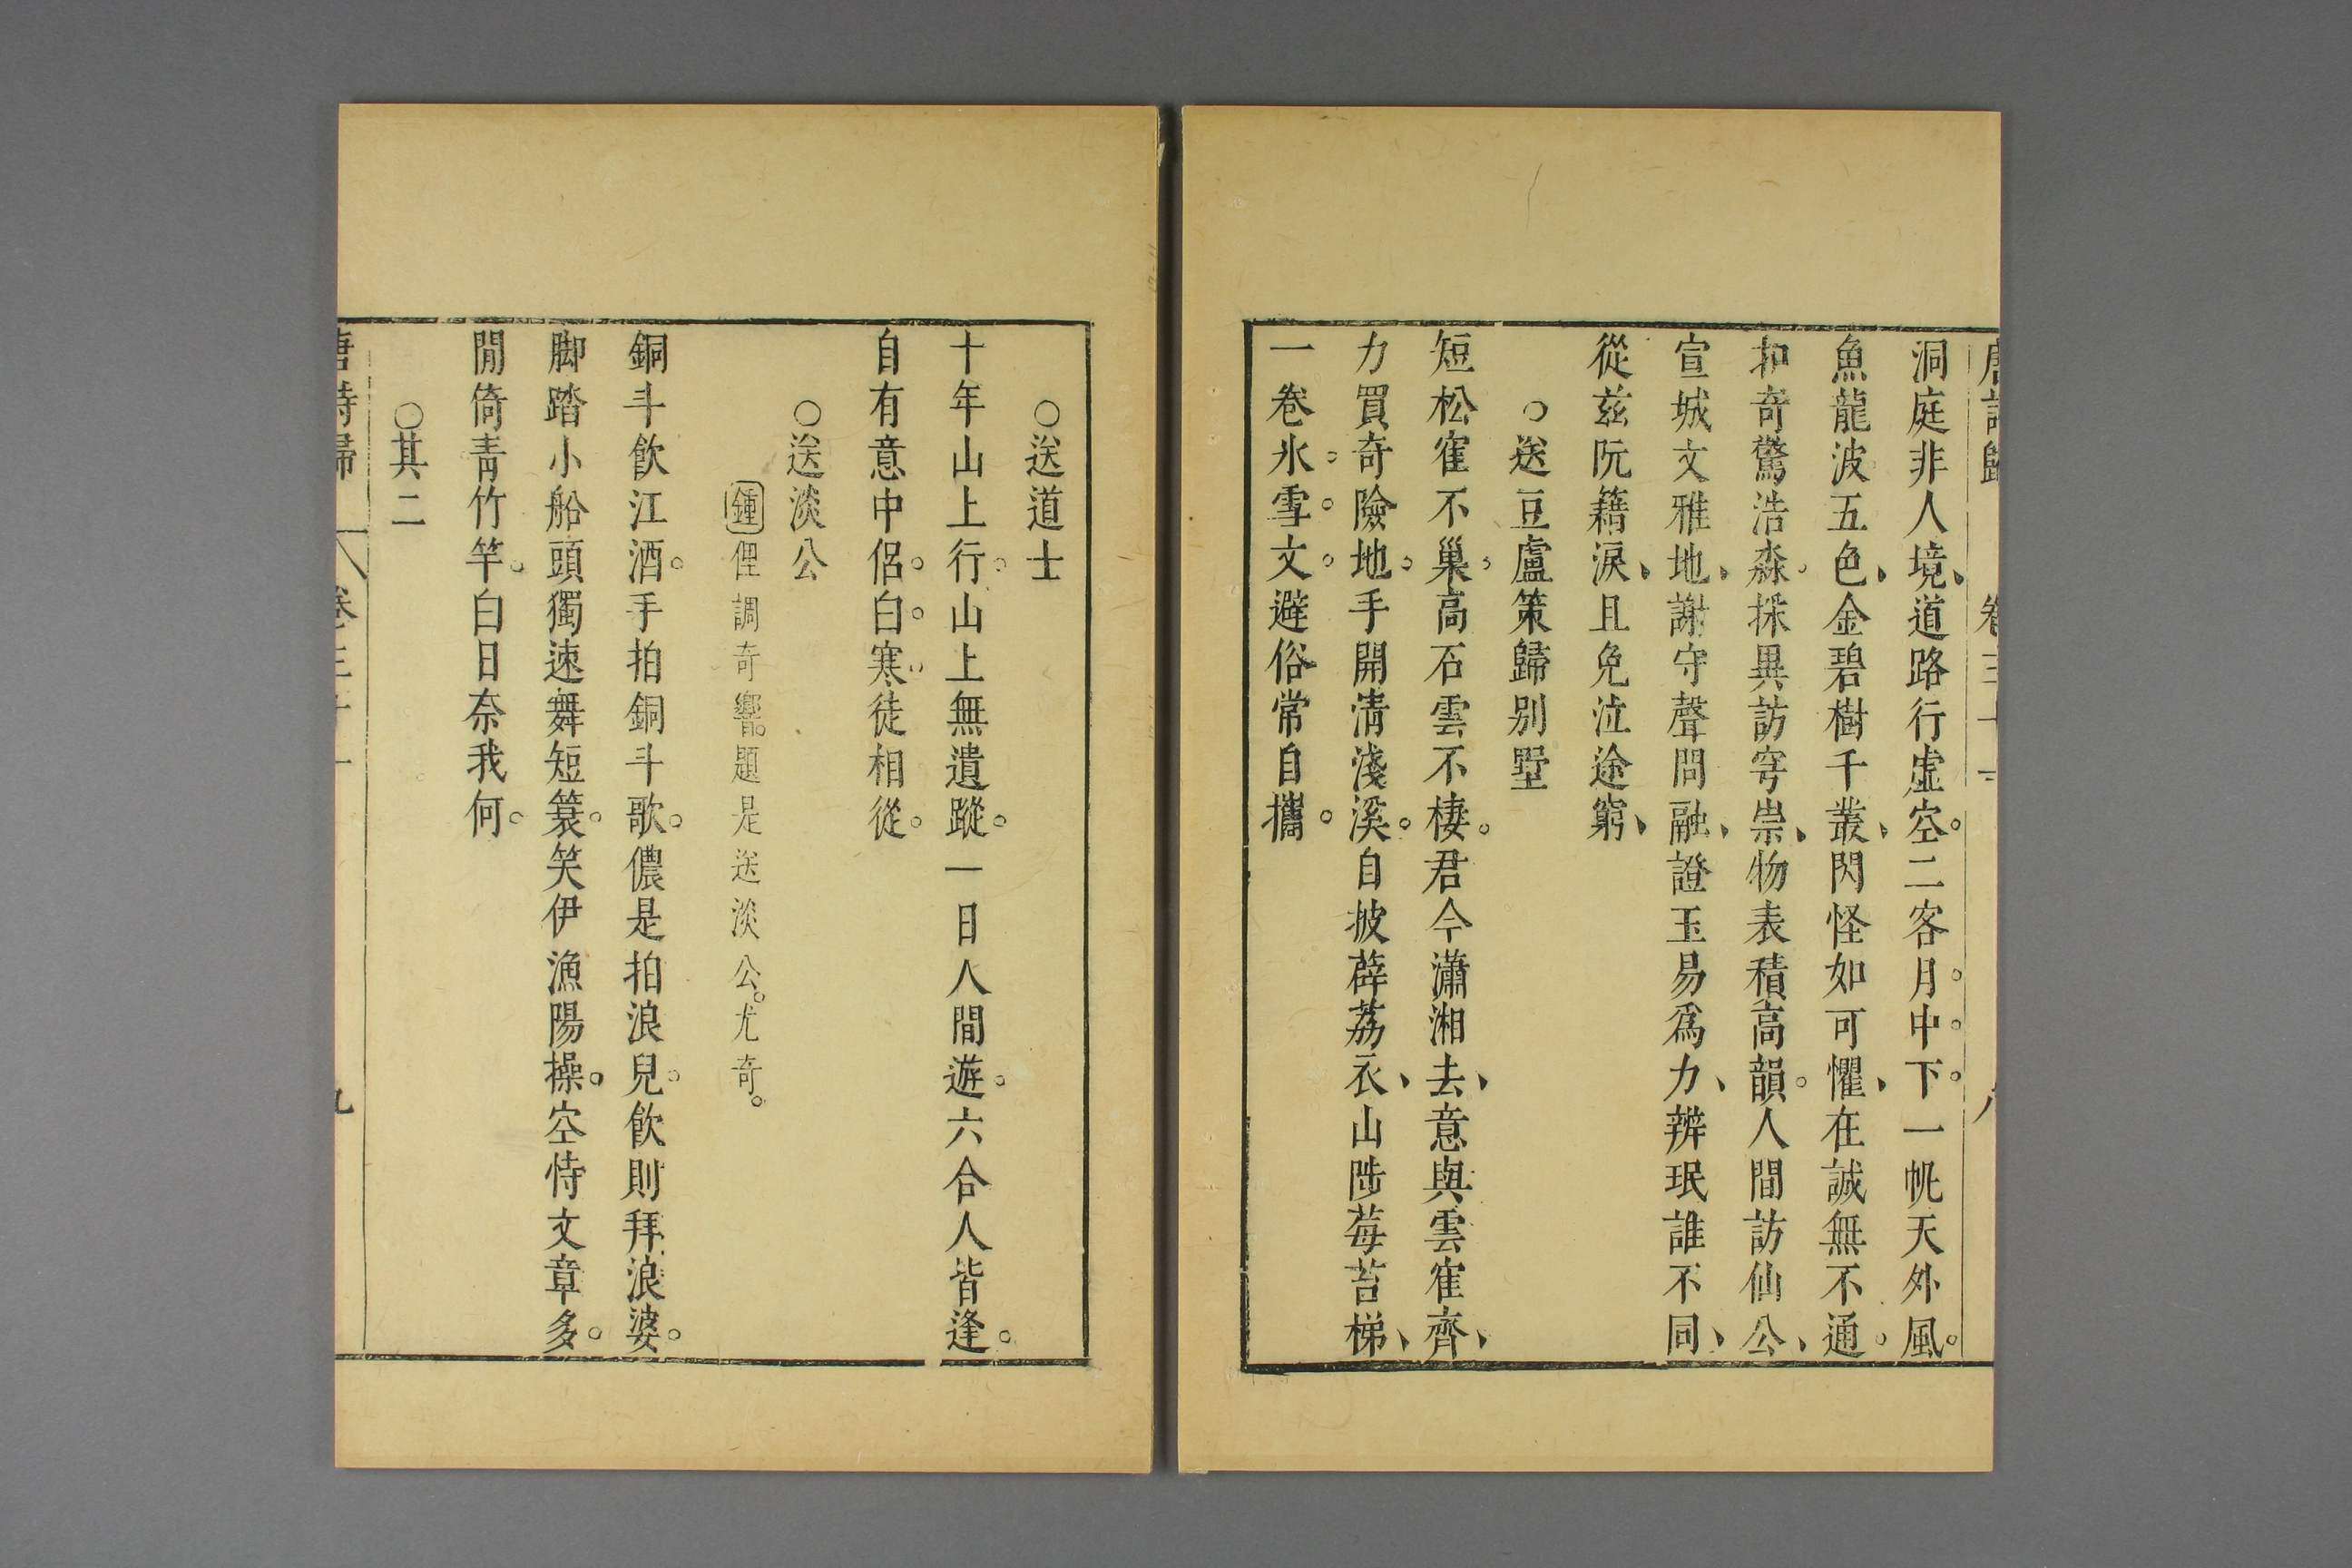 唐詩歸 卷三十一 八
洞庭非人境道路行虛空二客月中下一帆天外風
魚龍波五色金碧樹千叢閃怪如可懼在誠無不通
扣奇驚浩淼採異訪穹崇物表積高韻人間訪仙公
宣城文雅地謝守聲問融證玉易爲力辨珉誰不同
從茲阮籍淚且免泣途窮
○送豆盧策歸別墅
短松寉不巢高石雲不棲君今瀟湘去意與雲寉齊
力買奇險地手開清淺溪自披薜荔衣山陟莓苔梯
一卷氷雪文避俗常自攜
○送道士
十年山上行山上無遺蹤一日人間遊六合人皆逢
自有意中侶白寒徒相從
○送淡公
鍾俚調奇響題是送淡公尤奇
銅斗飲江酒手拍銅斗歌儂是拍浪兒飲則拜浪婆
脚踏小船頭獨速舞短蓑笑伊漁陽操空恃文章多
閒倚青竹竿白日奈我何
○其二
唐詩歸 卷三十一 九